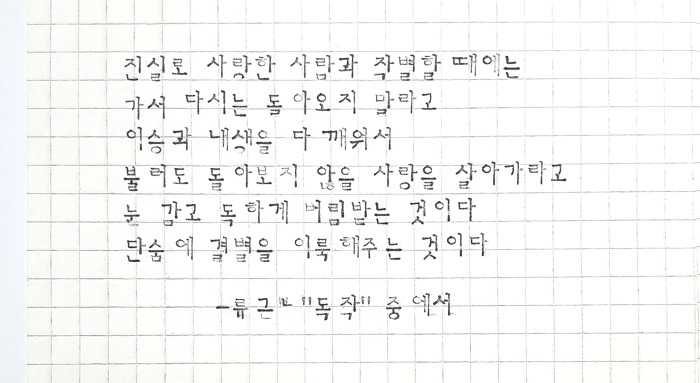 진실로 사랑한 사람과 작별할 때에는
가서 다시는 돌아오지 말라고
이승과 내생을 다 깨워서
불러도 돌아보지 않을 사랑을 살아가라고
눈 감고 독하게 버림받는 것이다
단숨에 결별을 이룩해주는 것이다
-류근 "독작" 중에서